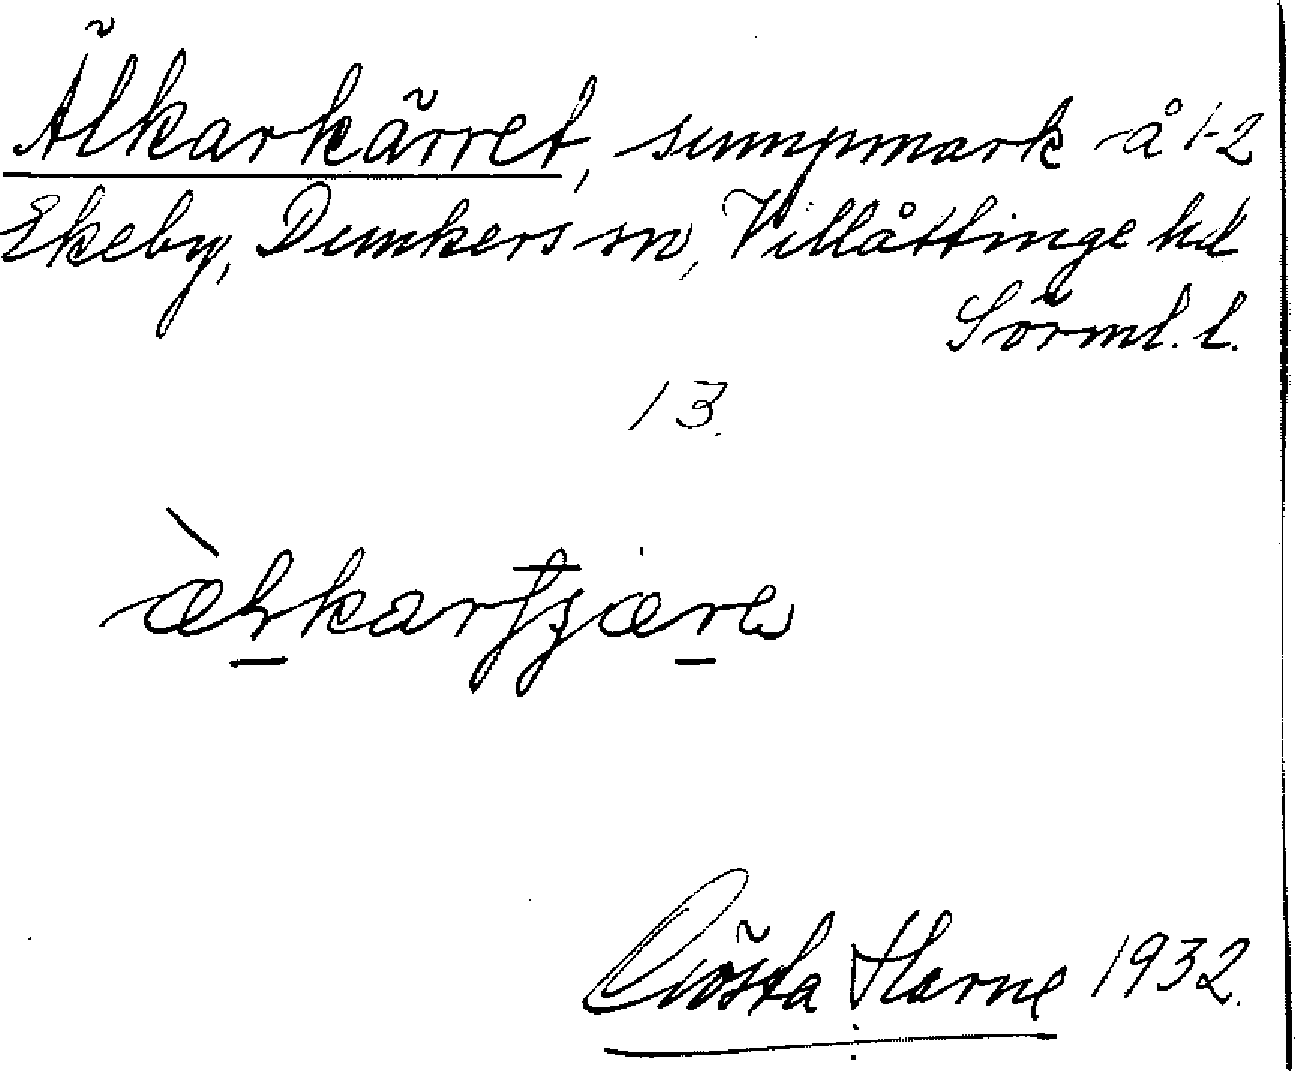 Älkarkärret, sumpmark å 1-2
Ekeby, Dunkers sn, Villåttinge hd
Sörml. l.
13.
Gösta Harne 1932.